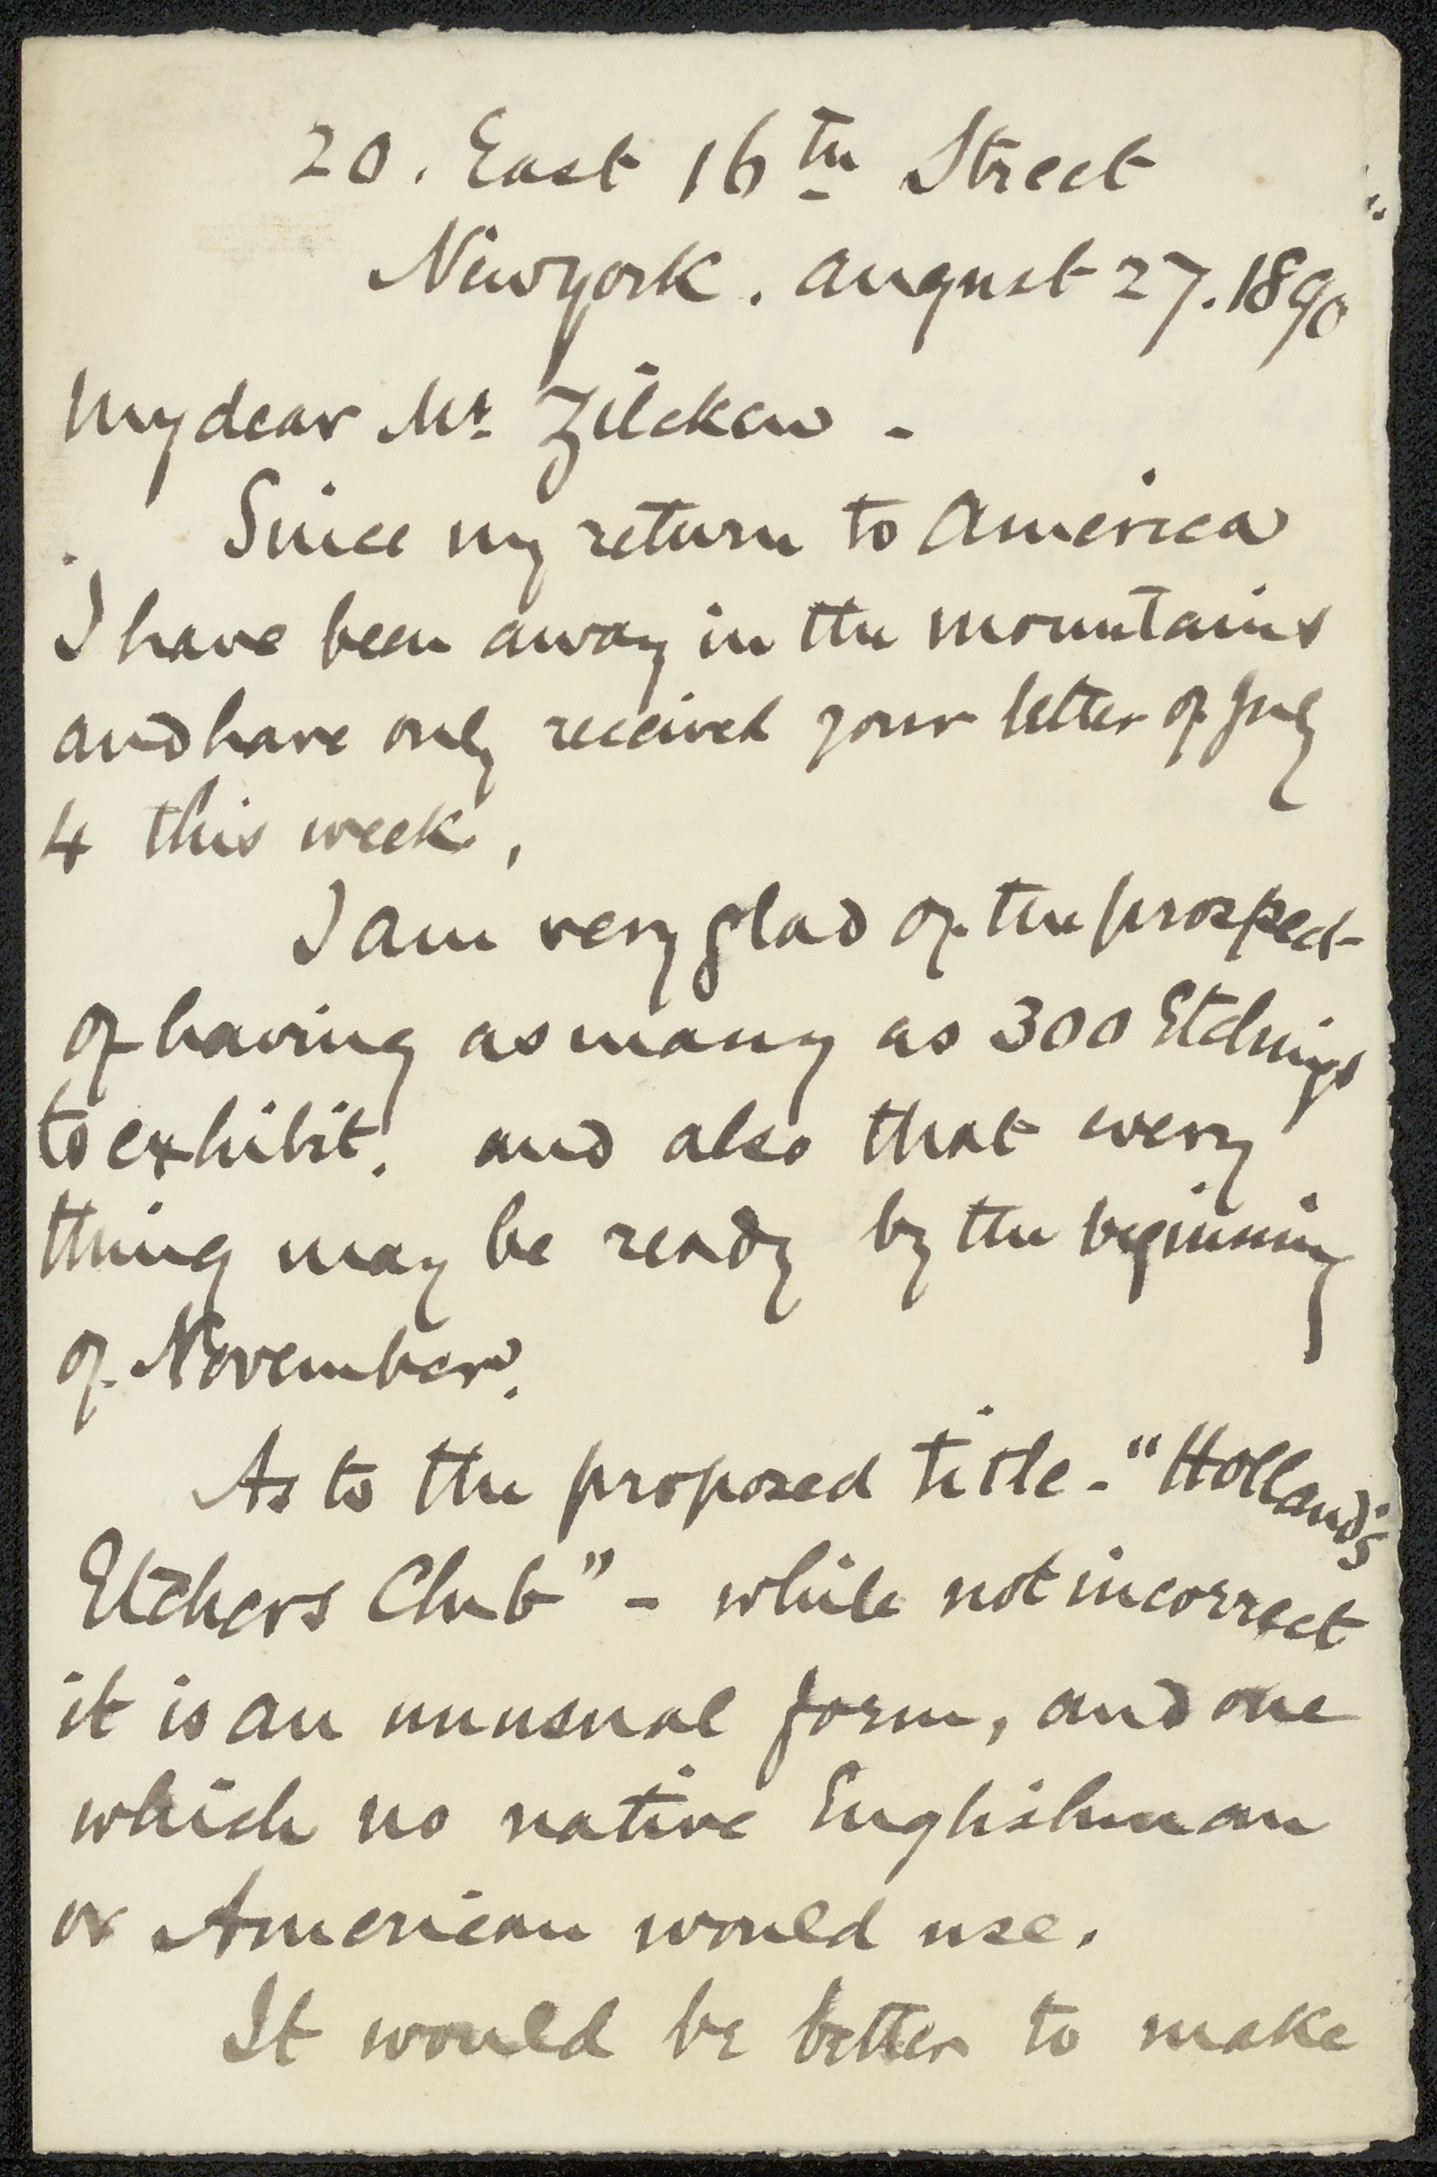 20. East 16th Street
Newyork. August 27. 1890
My dear Mr. Zilcken -
Since my return to America
I have been away in the mountains
and have only received your letter of July
4 this week,
I am very glad of the prospect
of having as many as 300 Etchings
to exhibit, and also that every
thing may be ready by the beginning
of November.
As to the proposed title - "Holland's
Etchers Club" - while not incorrect
it is an unusual form, and one
which no native Englishman
or American would use.
It would be better to make